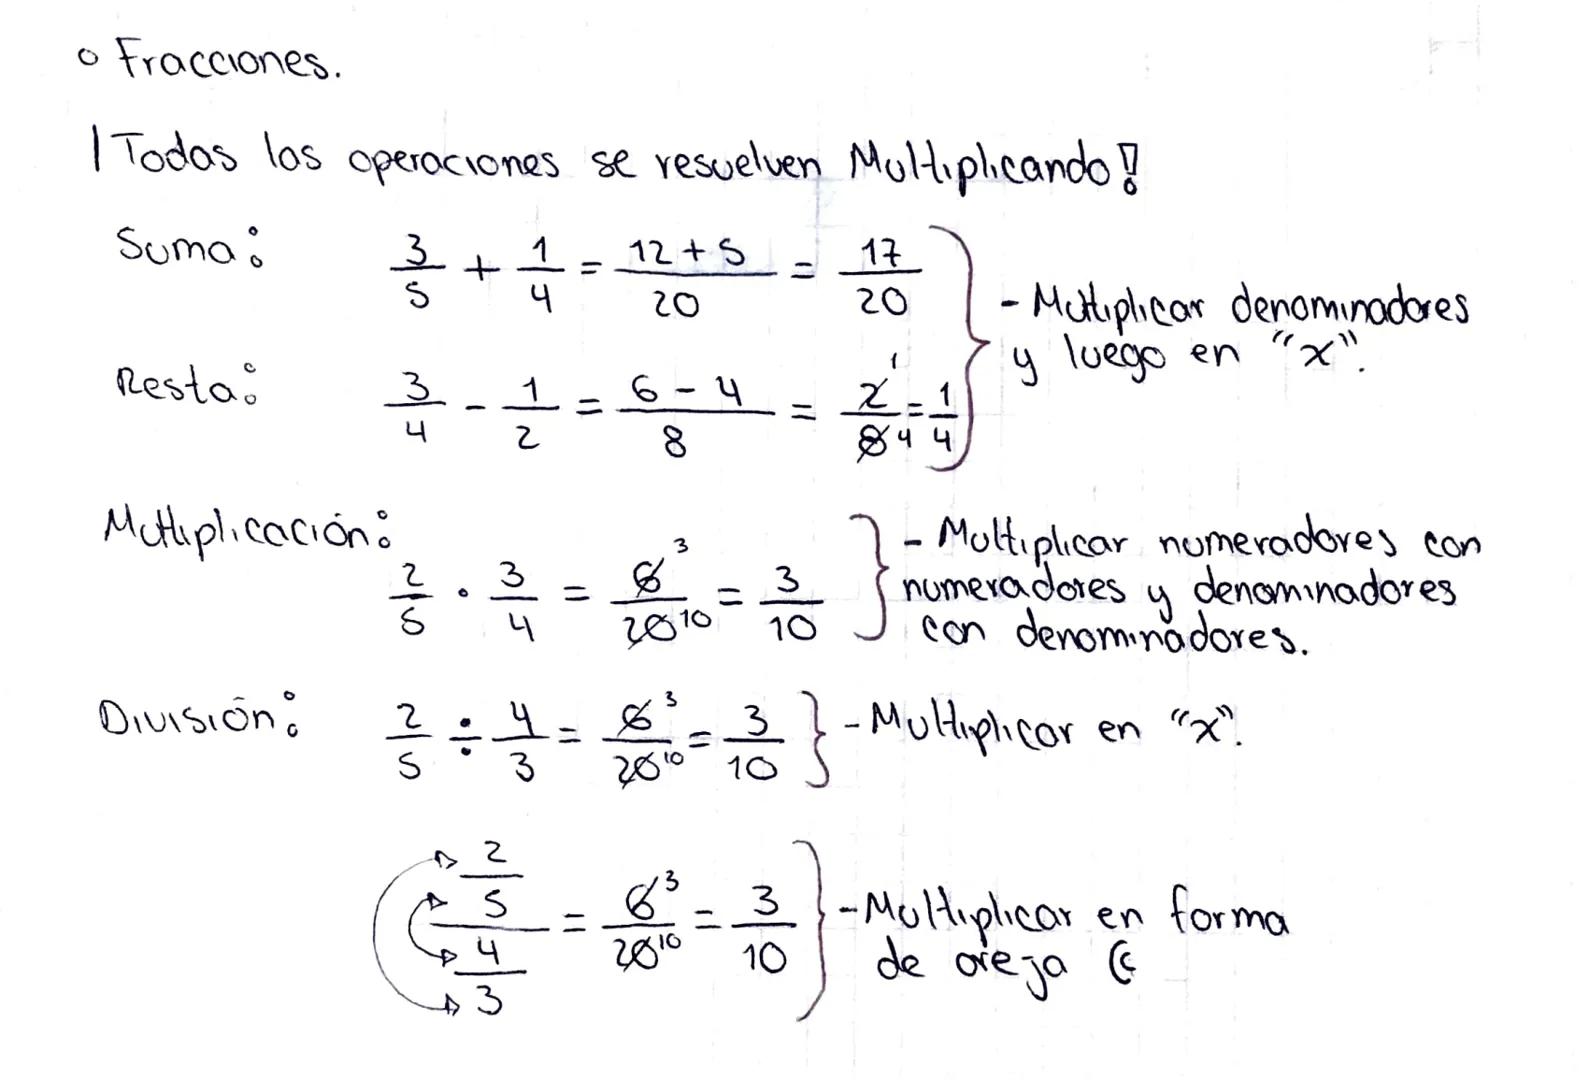 o Fracciones.
¡Todas las operaciones se resuelven Multiplicando!
Suma: 3/5 + 1/4 = (12 + 5)/20 = 17/20
- Multiplicar denominadores
y luego en "x".
Resta: 3/4 - 1/2 = (6 - 4)/8 = 2̸ ¹/8̸ 4 = 1/4
Multiplicación:
2/5 · 3/4 = 6̸ ³/2̸0̸ ¹⁰ = 3/10
- Multiplicar numeradores con
numeradores y denominadores
con denominadores.
División: 2/5 ÷ 4/3 = 6̸ ³/2̸0̸ ¹⁰ = 3/10 - Multiplicar en "x".
(2/5)/(4/3) = 6̸ ³/2̸0̸ ¹⁰ = 3/10
- Multiplicar en forma
de oreja